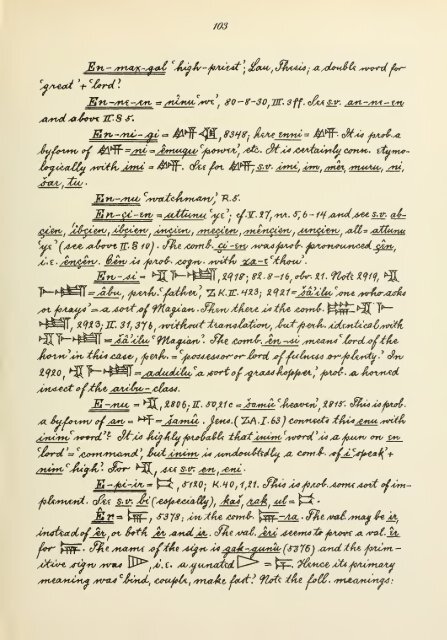 103
En-max-gal 'high-priest'; Lau, Thesis; a double word for
'great' + 'lord'.
En-ne-en = nînu 'we', 80-8-30, III. 3ff. See s.v. an-ne-en
and above II. § 5.
En-ni-gi = 8348; here enni = It is prob. a
byform of = ni = êmuqu 'power', etc. It is certainly conn. etymo-
logically with imi = See for s.v. imi, im, mêr, muru, ni,
šar, tu.
En-nu 'watchman', R.5.
En-çi-en = attunu 'ye'; cf. V. 27, nr. 5, 6-14 and see s.v. ab-
çien, ibçien, ibçien, inçien, meçien, mênçien, unçien, all = attunu
'ye' (see above II. § 10). The comb. çi-en was prob. pronounced çên,
i.e. ênçên. Çên is prob. cogn. with za-e 'thou'.
En-si = 2918; 82. 8-16, obv. 21. Note 2919,
= âbu, perh. 'father', ZK. II. 423; 2921 = šâ'ilu 'one who asks
or prays' = a sort of Magian. Then there is the comb.
2923; II. 31, 37b, without translation, but perh. identical with
= šâ'ilu 'Magian'. The comb. ên-si means 'lord of the
horn' in this case, perh. = 'possessor or lord of fulness or plenty.' In
2920, = adudilu 'a sort of grasshopper,' prob. a horned
insect of the aribu-class.
E-nu = 2806, II. 50, 21c = šamû 'heaven', 2815. This is prob.
a byform of an = = šamû. Jens. (ZA. I. 63) connects this enu with
inim 'word'? It is highly probable that inim 'word' is a pun on en
'lord' = 'command', but inim is undoubtedly a comb. of i 'speak' +
nim 'high'. For see s.v. en, eni.
E-pi-ir = 5120; K. 40, 1, 21. This is prob. some sort of im-
plement. See s.v. bi (especially), kaš, rak, ul =
Êr = 5378; in the comb. -ra. The val. may be ir,
instead of êr, or both êr and ir. The val. êri seems to prove a val. êr
for The name of the sign is gak-gunû (5376) and the prim-
itive sign was i.e. a gunated = Hence its primary
meaning was 'bind, couple, make fast'. Note the foll. meanings: